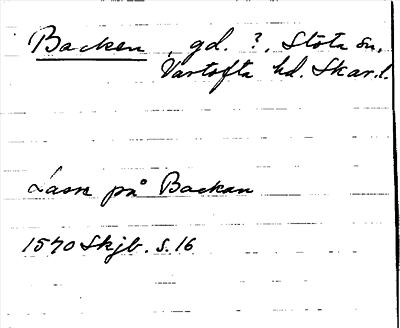 Backen, gd. ?, Stöta sn,
Vartofta hd. Skar.l.
Lasse på Backan
1570 Skjb. s. 16